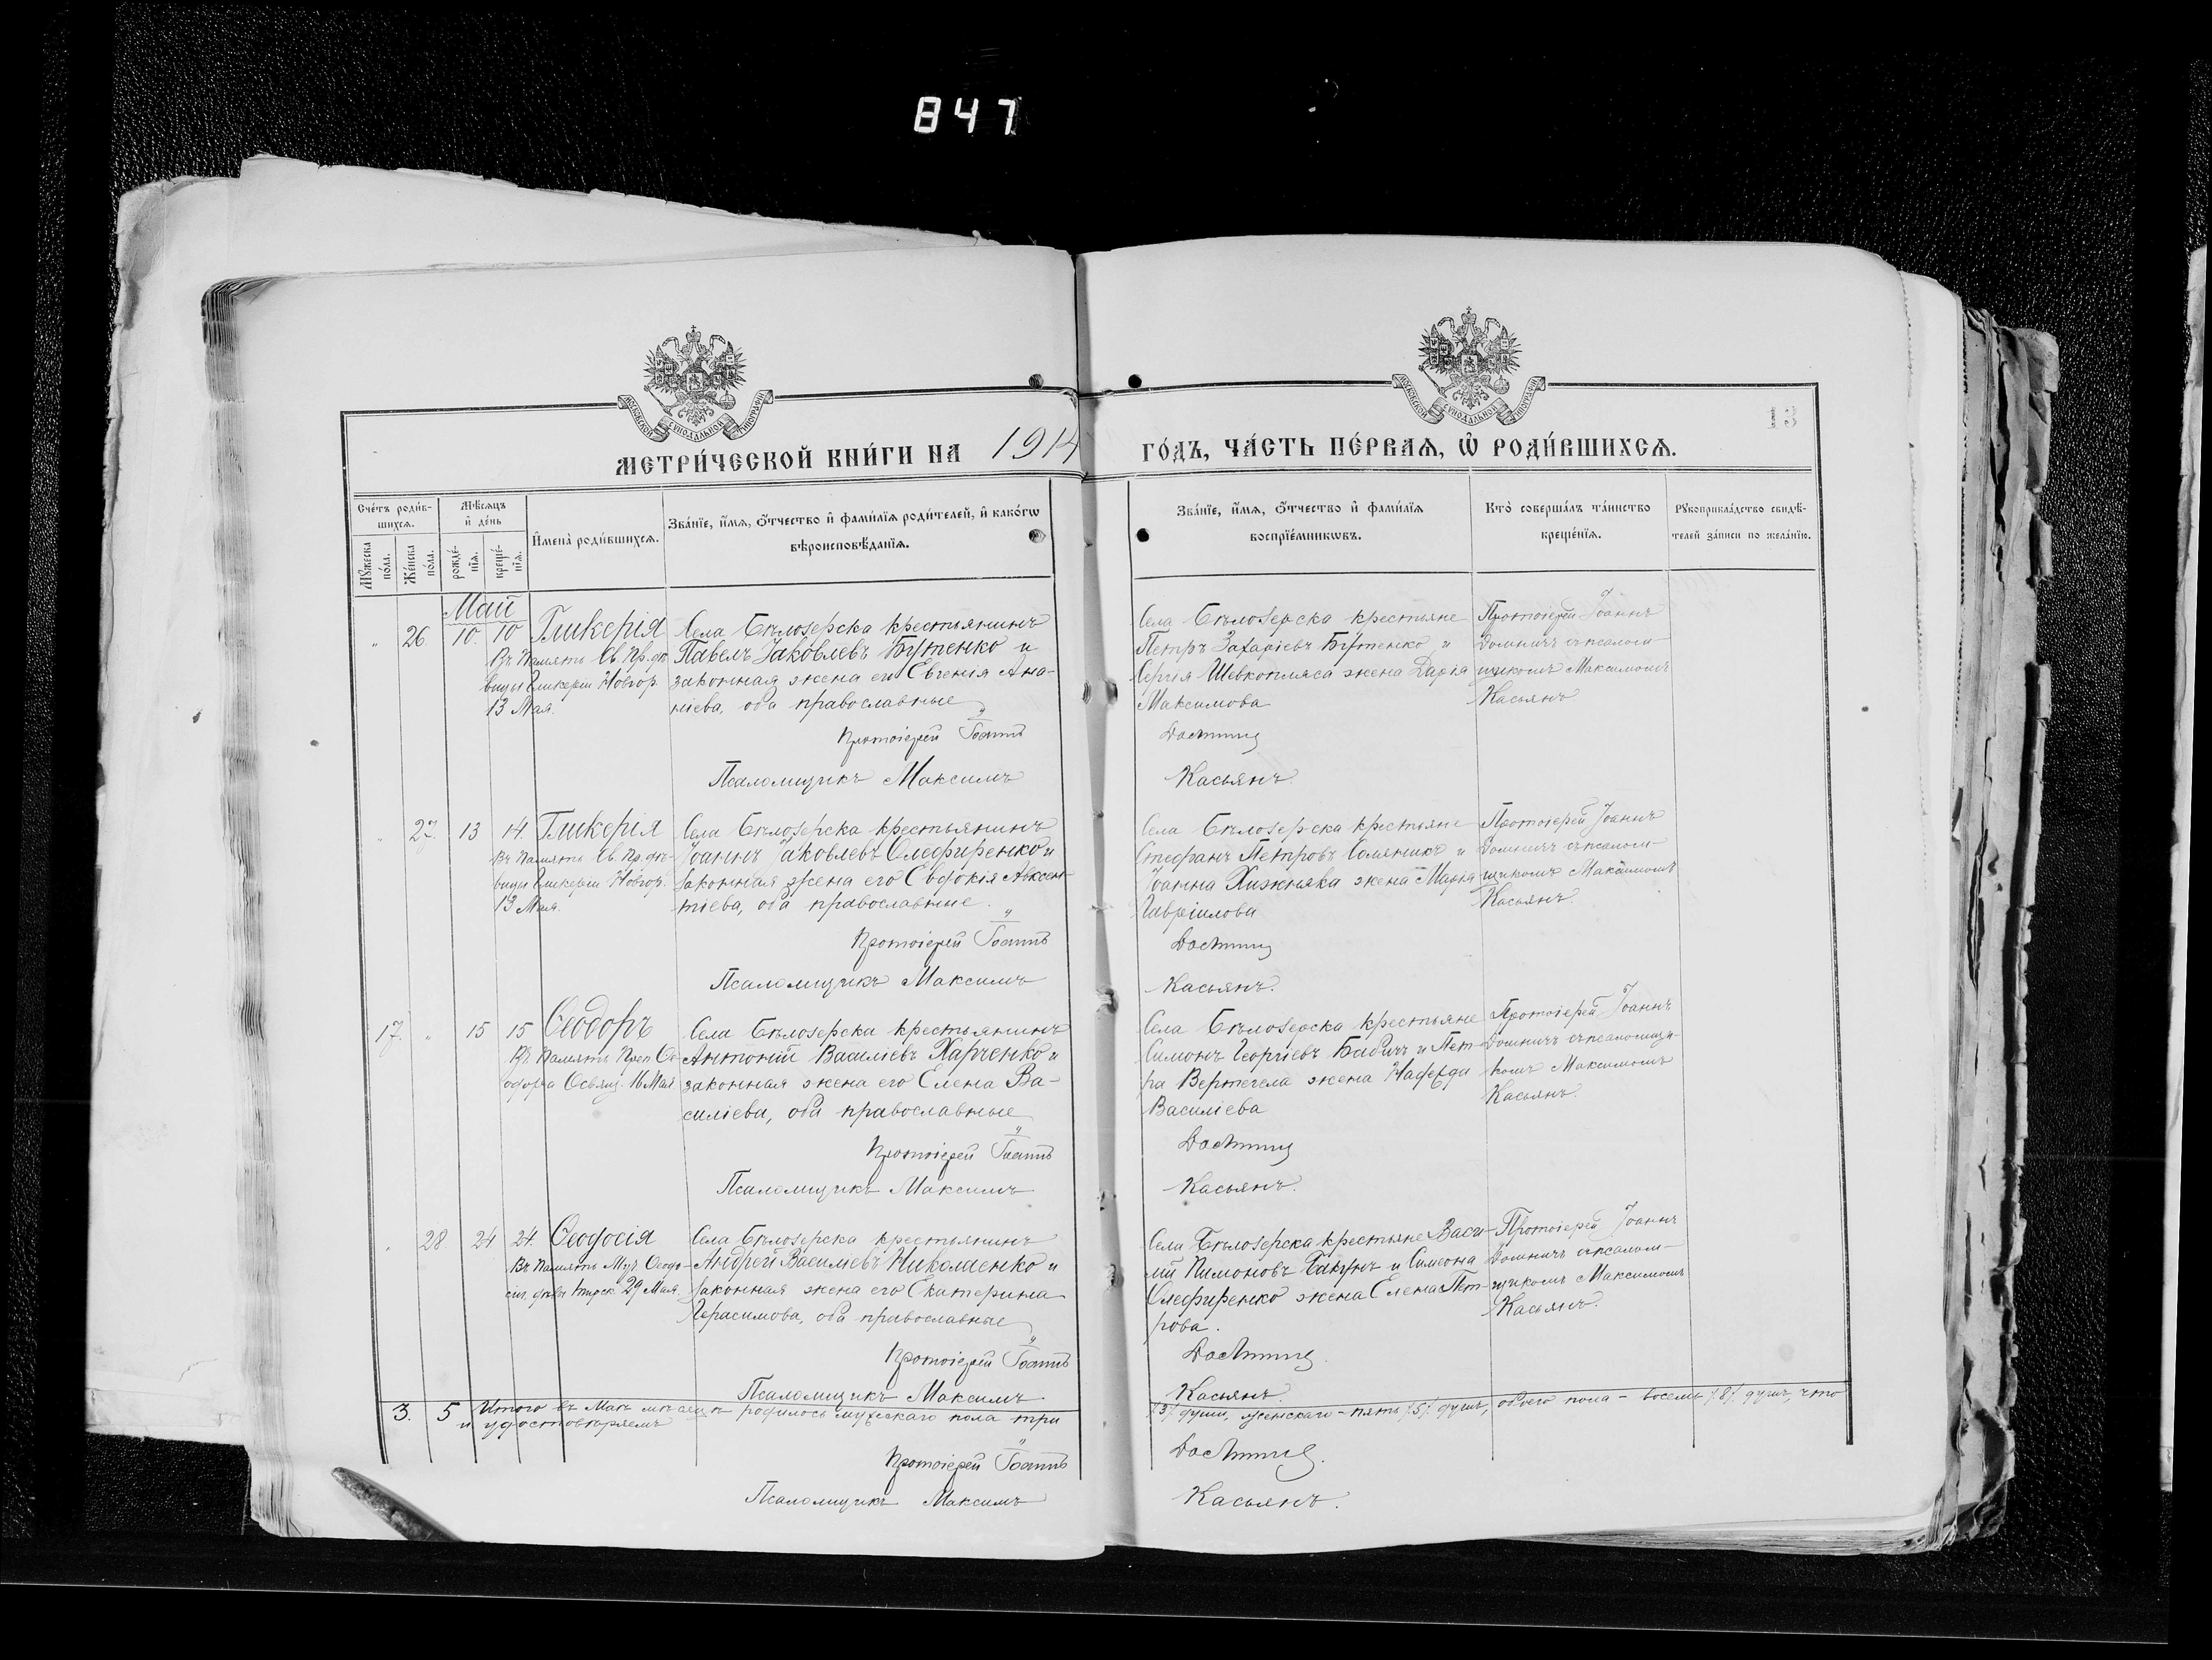 847
МОСКОВСКОЙ СѴНОДАЛЬНОЙ ТИПОГРАФІИ
МОСКОВСКОЙ СѴНОДАЛЬНОЙ ТИПОГРАФІИ
13
МЕТРИ́ЧЕСКОЙ КНИ́ГИ НА 1914 ГО́ДЪ, ЧА́СТЬ ПЕ́РВАѦ, Ѽ РОДИ́ВШИХСѦ.
Сче́тъ роди́в-
шихсѧ.
Мѣ́сѧцъ
и҆ де́нь
Мꙋ́жеска
по́ла.
Же́нска
по́ла.
рожде́-
нїѧ.
креще́-
нїѧ.
И҆мена̀ роди́вшихсѧ.
Зва́нїе, и҆́мѧ, ѻ҆́тчество и҆ фами́лїѧ роди́телей, и҆ како́гѡ
вѣроисповѣ́данїѧ.
Зва́нїе, и҆́мѧ, ѻ҆́тчество и҆ фами́лїѧ
воспрїе́мникѡвъ.
Кто̀ соверша́лъ та́инство
креще́нїѧ.
Рꙋкоприкла́дство свидѣ́-
телей за́писи по жела́нїю.
Май
" 26. 10. 10 Гликерія
Въ память Св. Пр. дѣ-
вицы Гликеріи Новгор.
13 Мая.
Села Бѣлозерска крестьянинъ
Павелъ Іаковлевъ Бутенко и
законная жена его Евгенія Ана-
ніева, оба православные
Протоіерей Іоаннъ
Псаломщикъ Максимъ
Села Бѣлозерска крестьяне
Петръ Захаріевъ Бутенко и
Сергія Шевкопляса жена Дарія
Максимова
Домничъ
Касьянъ.
Протоіерей Іоаннъ
Домничъ съ псалом-
щикомъ Максимомъ
Касьянъ
" 27. 13 14. Гликерія
Въ память Св. Пр. дѣ-
вицы Гликеріи Новгор.
13 Мая.
Села Бѣлозерска крестьянинъ
Іоаннъ Іаковлевъ Олефиренко и
законная жена его Евдокія Авксен-
тіева, оба православные.
Протоіерей Іоаннъ
Псаломщикъ Максимъ
Села Бѣлозерска крестьяне
Стефанъ Петровъ Соляникъ и
Іоанна Хижняка жена Марія
Гавріилова
Домничъ
Касьянъ.
Протоіерей Іоаннъ
Домничъ съ псалом-
щикомъ Максимомъ
Касьянъ.
17. " 15 15 Ѳеодоръ
Въ память Преп. Ѳе-
одора Освящ. 16 Мая
Села Бѣлозерска крестьянинъ
Антоній Василіевъ Харченко и
законная жена его Елена Ва-
силіева, оба православные
Протоіерей Іоаннъ
Псаломщикъ Максимъ
Села Бѣлозерска крестьяне
Симонъ Георгіевъ Бабичъ и Пет-
ра Вертегела жена Надежда
Василіева
Домничъ
Касьянъ.
Протоіерей Іоаннъ
Домничъ съ псаломщи-
комъ Максимомъ
Касьянъ.
" 28 24 24. Ѳеодосія
Въ память Муч. Ѳеодо-
сіи дѣвы Тирск. 29 Мая.
Села Бѣлозерска крестьянинъ
Андрей Василіевъ Николаенко и
законная жена его Екатерина
Герасимова, оба православные
Протоіерей Іоаннъ
Псаломщикъ Максимъ
Села Бѣлозерска крестьяне Васи-
лій Пимоновъ и Симеона
Олефиренко жена Елена Пет-
рова.
Домничъ.
Касьянъ.
Протоіерей Іоаннъ
Домничъ съ псалом-
щикомъ Максимомъ
Касьянъ.
3. 5 Итого въ Маѣ мѣсяцѣ родилось мужескаго пола три /3/ души, женскаго - пять /5/ душъ, обоего пола - восемь /8/ душъ, что
и удостовѣряемъ
Протоіерей Іоаннъ Домничъ.
Псаломщикъ Максимъ Касьянъ.